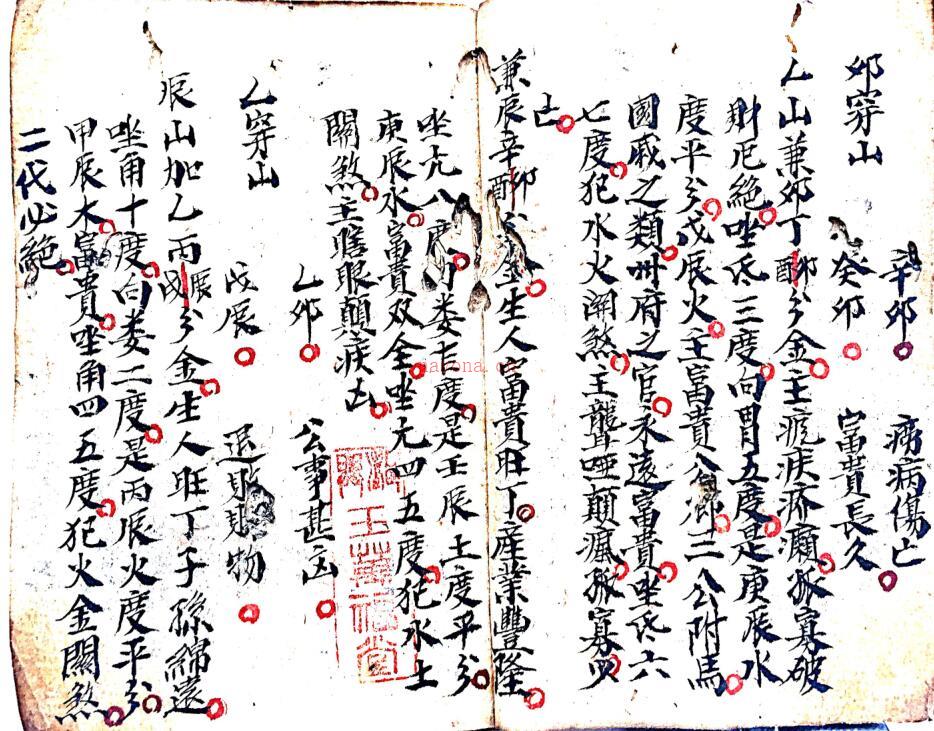 卯穿山
辛卯 癆病傷亡
癸卯 富貴長久
乙山兼卯丁卯酉分金主疯疾疥癩孤寡破
財厄絶坐氐三度向胃五度是庚辰水
度平分戊辰火主富貴公卿三公附馬
國戚之類州府之官永遠富貴坐氐六
七度犯水火關煞主聾啞顛瘋孤寡
亡
兼辰辛卯酉分金生人富貴旺丁產業豐隆
坐亢八度向婁七度是壬辰土度平分
庚辰水富貴双全坐亢四五度犯水土
關煞主瞎眼顛疾凶
乙穿山
乙卯 公事甚凶
戊辰 退財物
辰山加乙丙辰戌分金生人旺丁子孫綿遠
坐角十度向婁二度是丙辰火度平分
甲辰木富貴坐角四五度犯火金關煞
二代必絶
玉華福堂